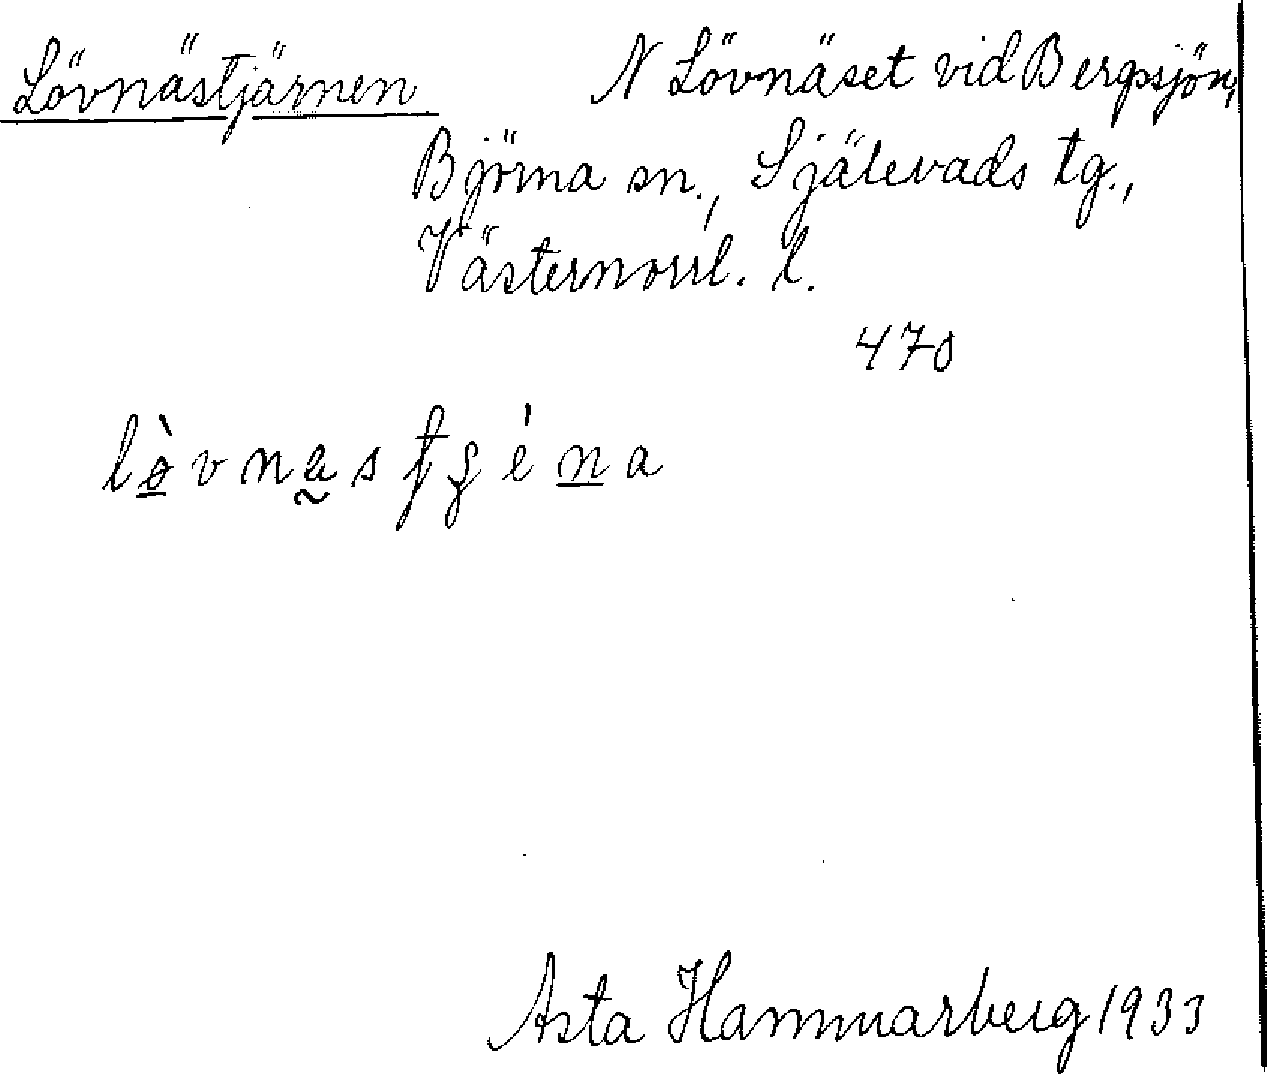 Lövnästjärnen N Lövnäset vid Bergsjön,
Björna sn., Själevads tg.,
Västernorrl. l.
470
Asta Hammarberg 1933